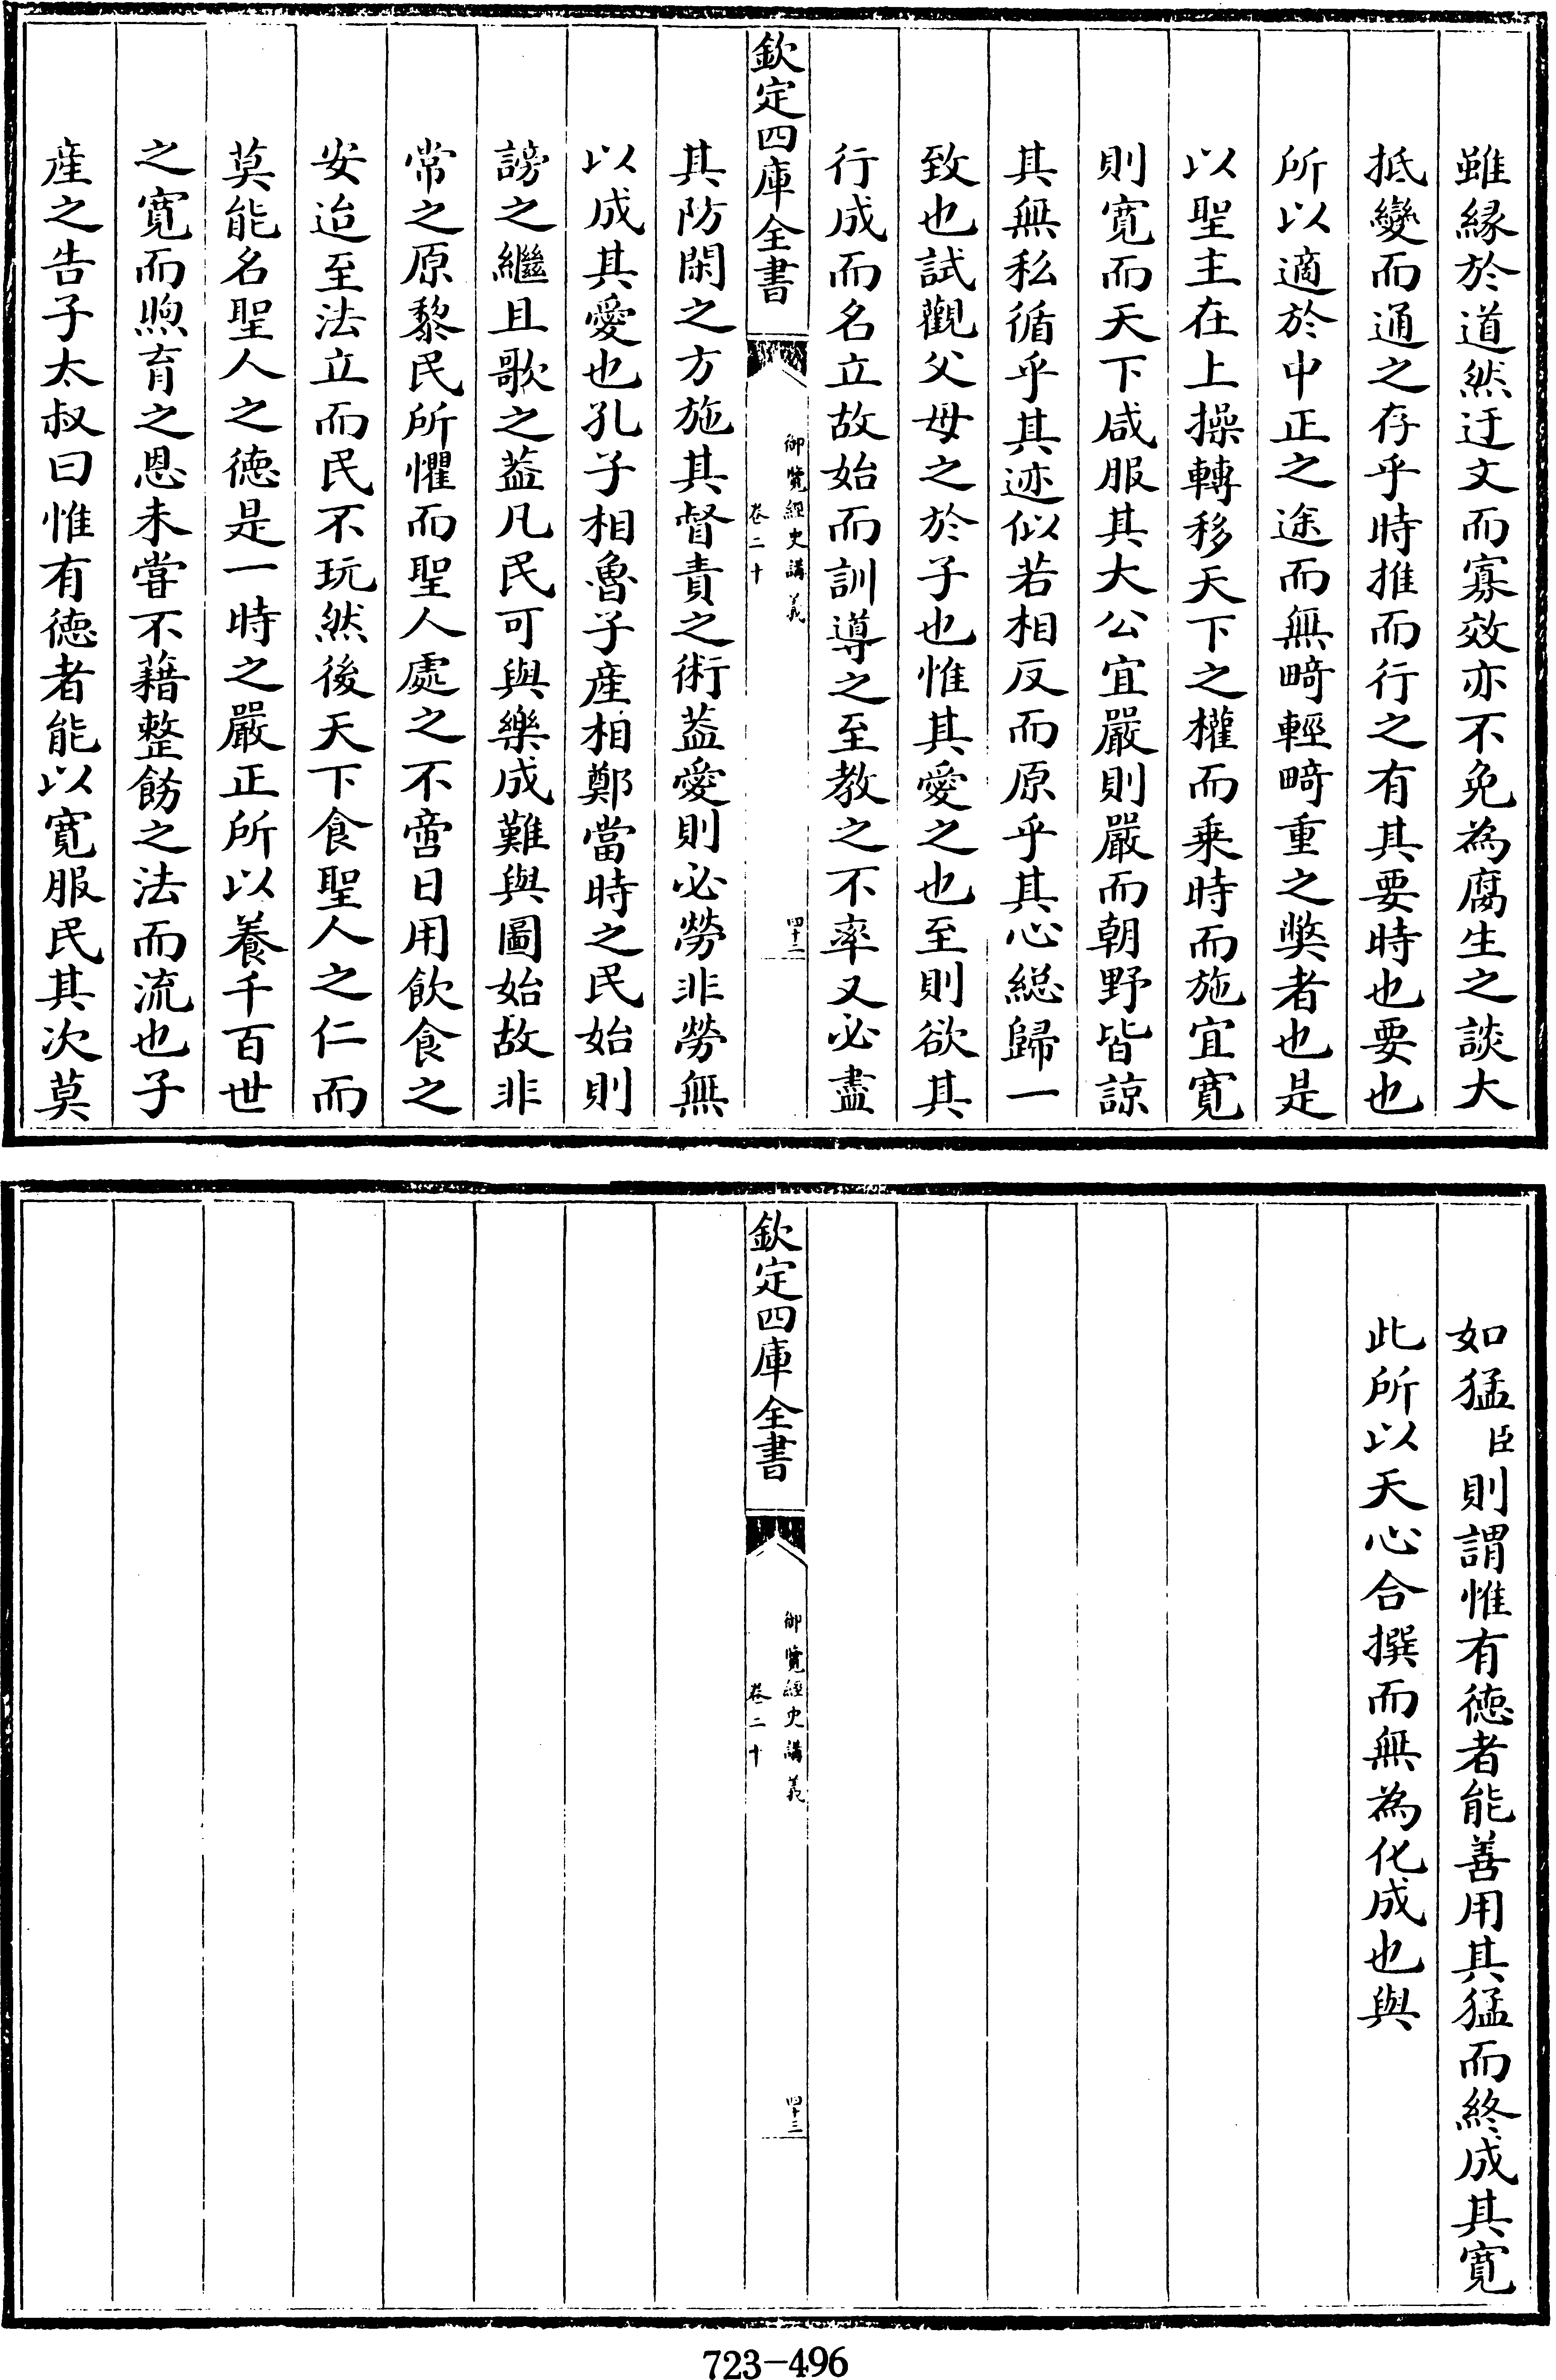 雖縁於道然迂文而寡效亦不免為腐生之談大
抵變而通之存乎時推而行之有其要時也要也
所以適於中正之途而無畸輕畸重之獘者也是
以聖主在上操轉移天下之權而乗時而施宜寛
則寛而天下咸服其大公宜嚴則嚴而朝野皆諒
其無私循乎其迹似若相反而原乎其心総歸一
致也試觀父母之於子也惟其愛之也至則欲其
行成而名立故始而訓導之至教之不率又必盡
欽定四庫全書
御覽經史講義
卷二十
四十二
其防閑之方施其督責之術葢愛則必勞非勞無
以成其愛也孔子相魯子産相鄭當時之民始則
謗之繼且歌之葢凡民可與樂成難與圖始故非
常之原黎民所懼而聖人處之不啻日用飲食之
安迨至法立而民不玩然後天下食聖人之仁而
莫能名聖人之德是一時之嚴正所以養千百世
之寛而煦育之恩未甞不藉整飭之法而流也子
産之告子太叔曰惟有徳者能以寛服民其次莫
如猛臣則謂惟有徳者能善用其猛而終成其寛
此所以天心合撰而無為化成也與
欽定四庫全書
御覽經史講義
卷二十
四十三
723-496